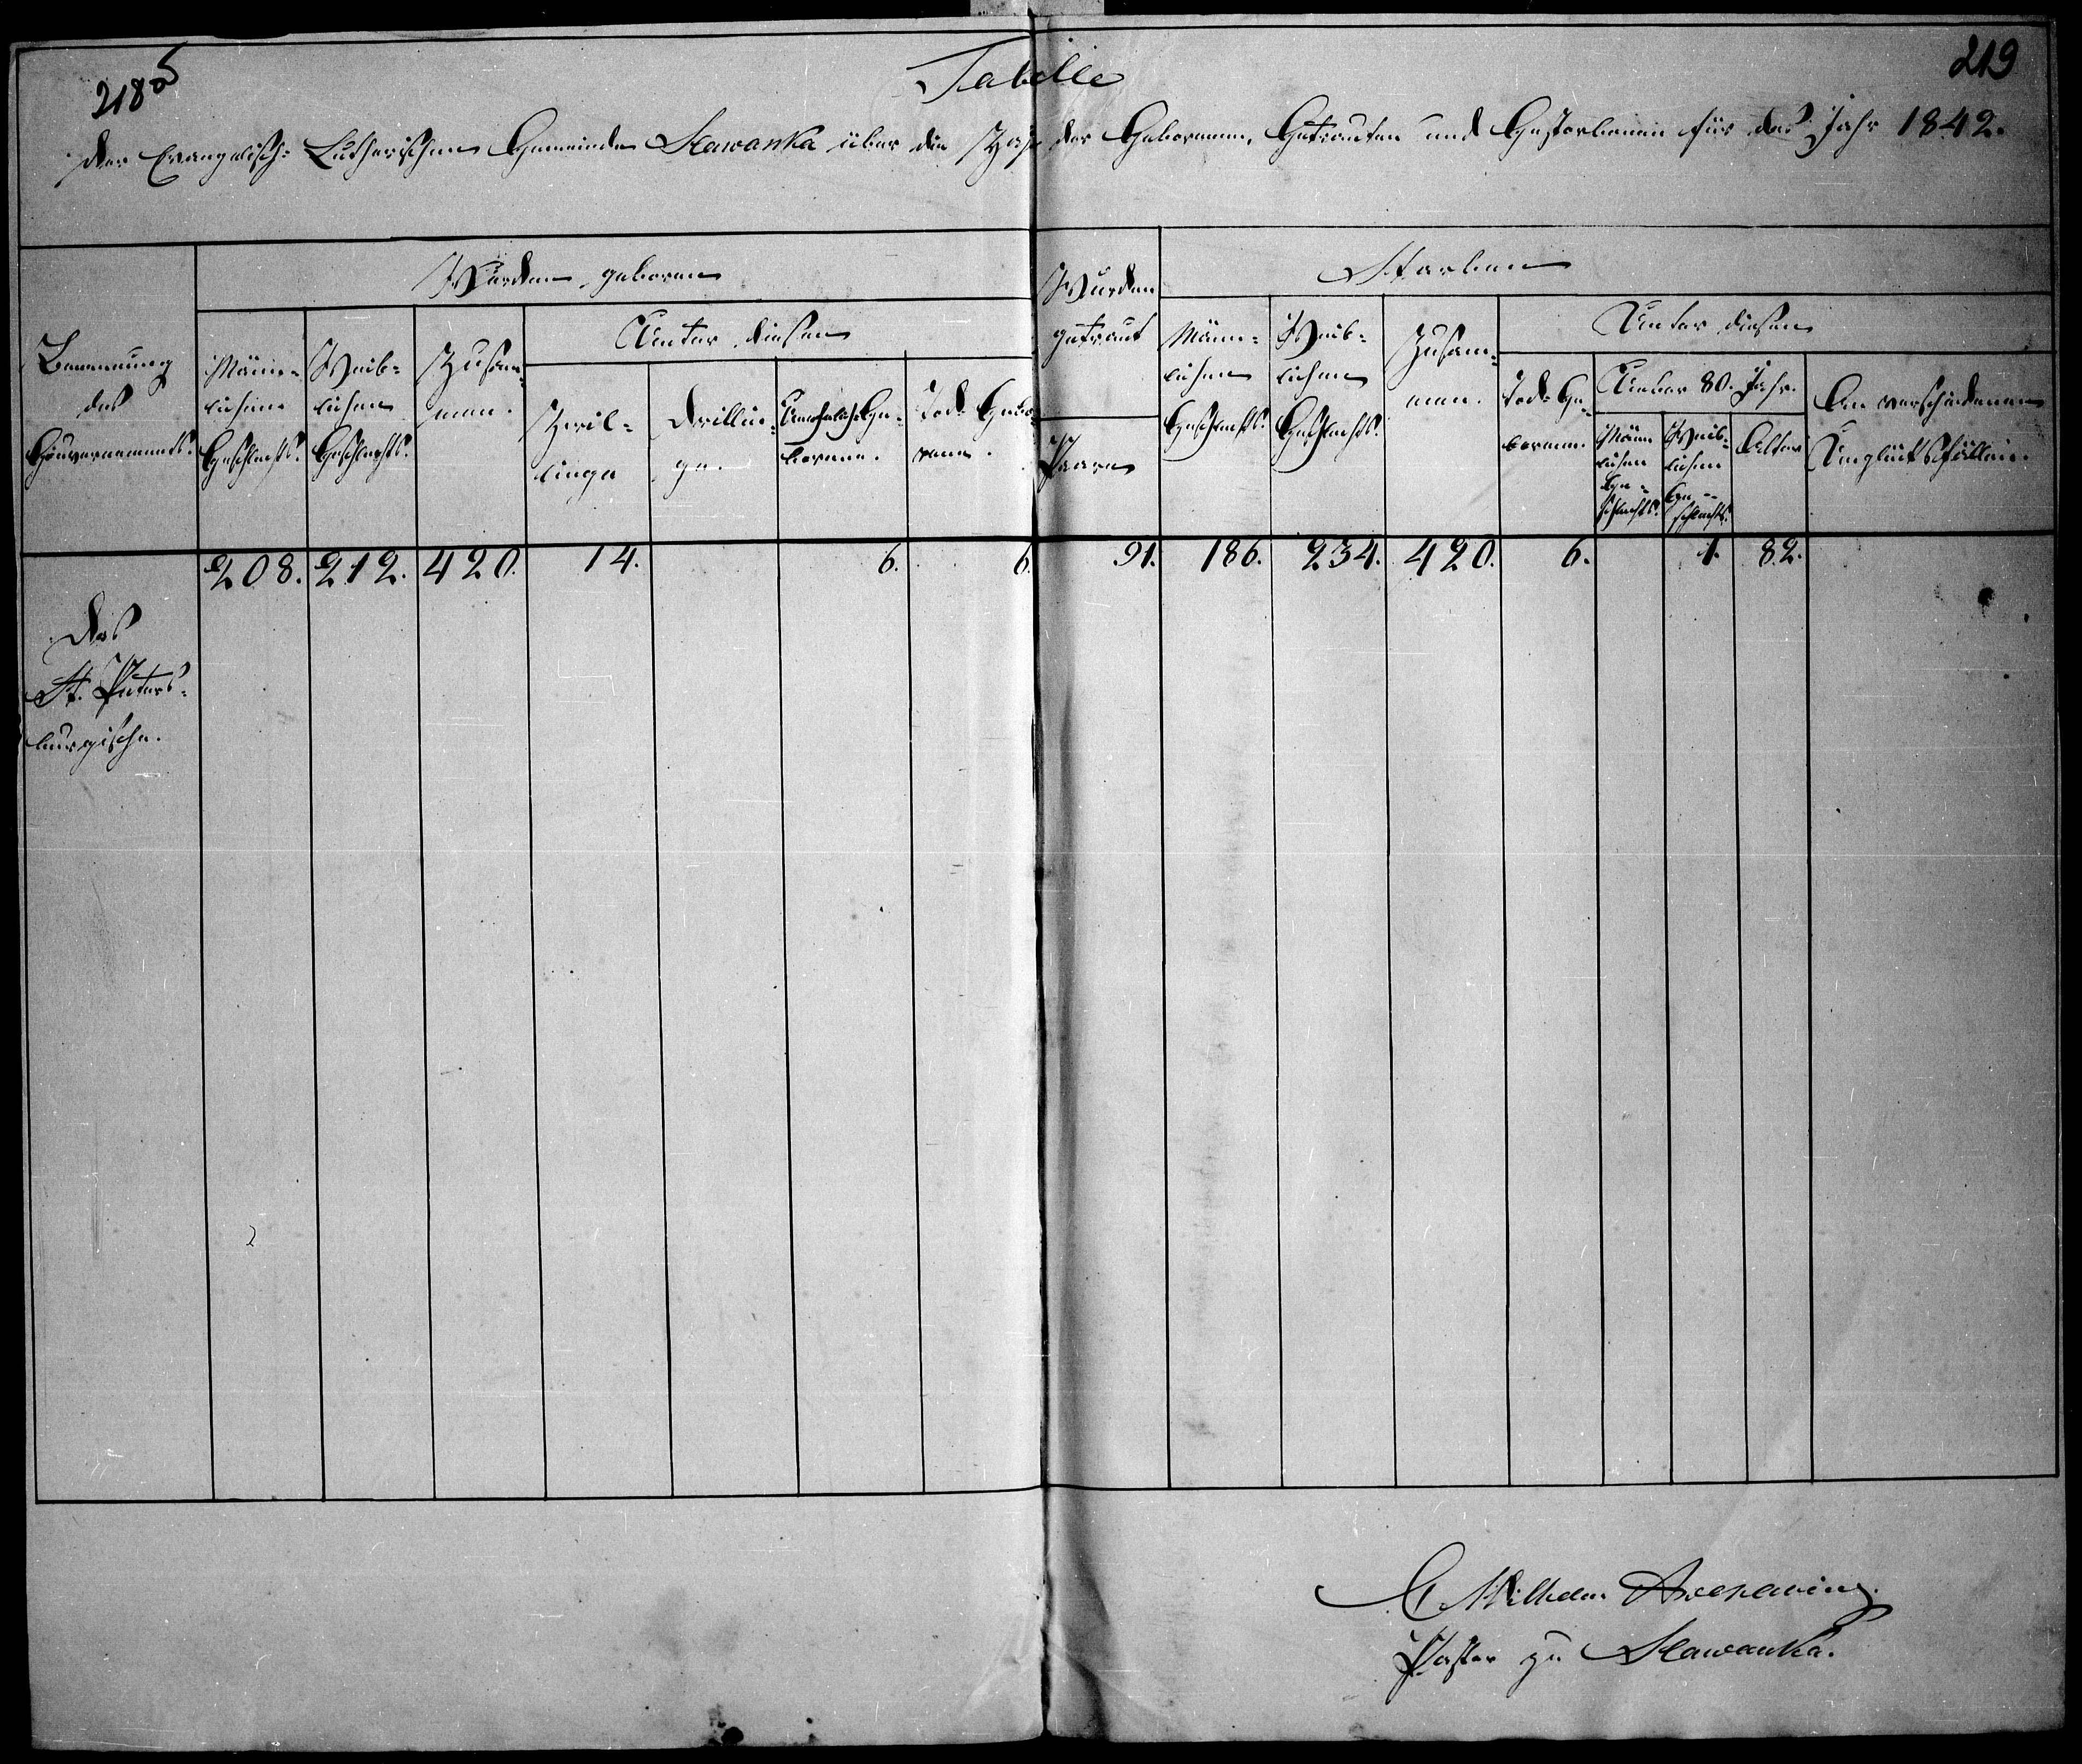 218 b
219
Tabelle
der Evangelisch-Lutherischen Gemeinde Slawanka über die Zahl der Geborenen, Getrauten und Gestorbenen für das Jahr 1842.
Benennung
des
Gouvernements.
Wurden geboren
Männ-
lichen
Geschlechts.
Weib-
lichen
Geschlechts.
Zusam-
men.
Unter diesen
Zwil-
linge
Drillin-
ge.
Unehelich Ge-
borene.
Todt Gebo-
rene.
Wurden
getraut
Paare
Starben
Männ-
lichen
Geschlechts.
Weib-
lichen
Geschlechts.
Zusam-
men.
Unter diesen
Todt Ge-
borene.
Ueber 80. Jahr.
Männ
lichen
Ge-
schlechts.
Weib-
lichen
Ge-
schlechts.
Alter
An verschiedenen
Unglücksfällen.
208. 212. 420. 14. 6. 6. 91. 186. 234. 420. 6. 1. 82.
Das
St. Peters-
burgische.
Wilhelm
Pastor zu Slawanka.